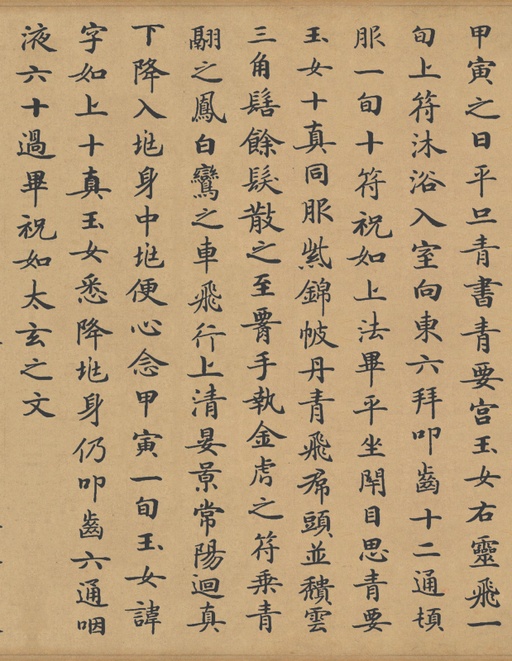 甲寅之日平旦青書青要宮玉女右靈飛一
旬上符沐浴入室向東六拜叩齒十二通頓
服一旬十符祝如上法畢平坐閉目思青要
玉女十真同服紫錦帔丹青飛帬頭並頹雲
三角髻餘髮散之至腰手執金虎之符乗青
翮之鳳白鸞之車飛行上清晏景常陽迴真
下降入兆身中兆便心念甲寅一旬玉女諱
字如上十真玉女悉降兆身仍叩齒六通咽
液六十過畢祝如太玄之文